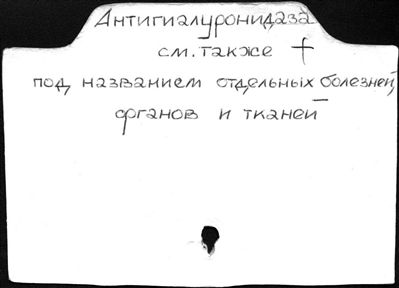 Антигиалуронидаза
см. также †
под названием отдельных болезней,
органов и тканей